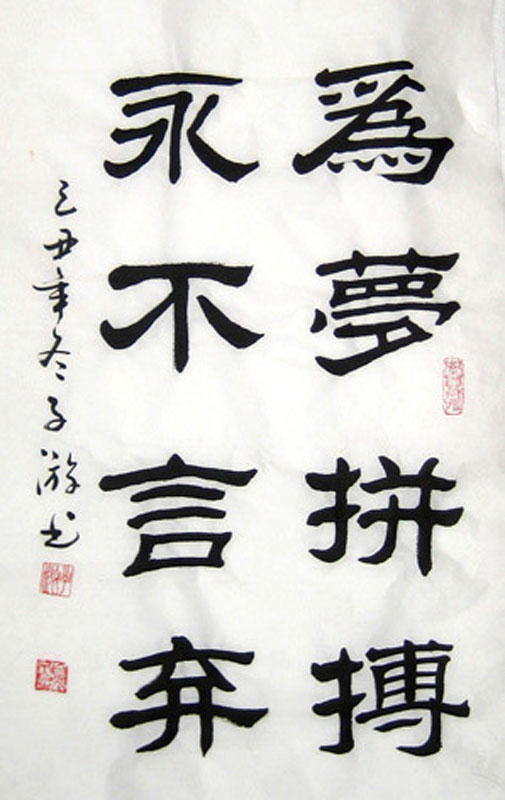 為夢拼搏
永不言弃
己丑年冬子游书